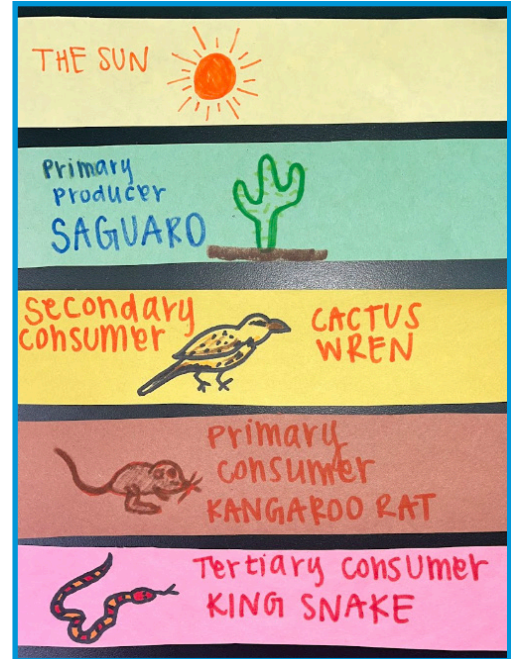 THE SUN
Primary
Producer
SAGUARO
Secondary
Consumer
CACTUS
WREN
Primary
Consumer
KANGAROO RAT
Tertiary Consumer
KING SNAKE